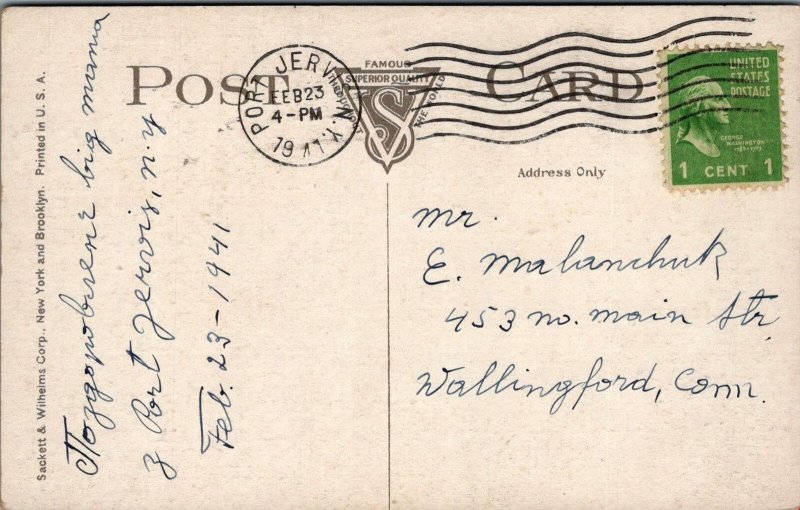 POST CARD
FAMOUS
SUPERIOR QUALITY
THE WORLD
VS
PORT JERVIS N.Y.
FEB 23
4-PM
1941
UNITED
STATES
POSTAGE
GEORGE
WASHINGTON
1 CENT 1
Address Only
Sackett & Wilhelms Corp., New York and Brooklyn. Printed in U. S. A.
Поздоровленє від мама
з Port Jervis, n.y
Feb. 23-1941
mr.
E. Malanchuk
453 no. main Str.
Wallingford, Conn.